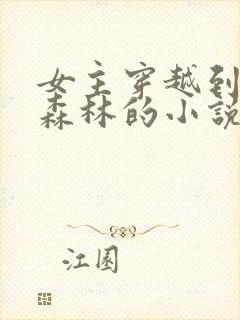 女主穿越到
森林的小説
江園